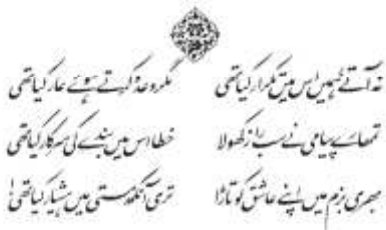 نہ آتے ہمیں اس میں تکرار کیا تھی مگر وعدہ کرتے ہوئے عار کیا تھی
تمہارے پیامی نے سب راز کھولا خطا اس میں بندے کی سرکار کیا تھی
بھری بزم میں اپنے عاشق کو تاڑا تری آنکھ مستی میں ہشیار کیا تھی!